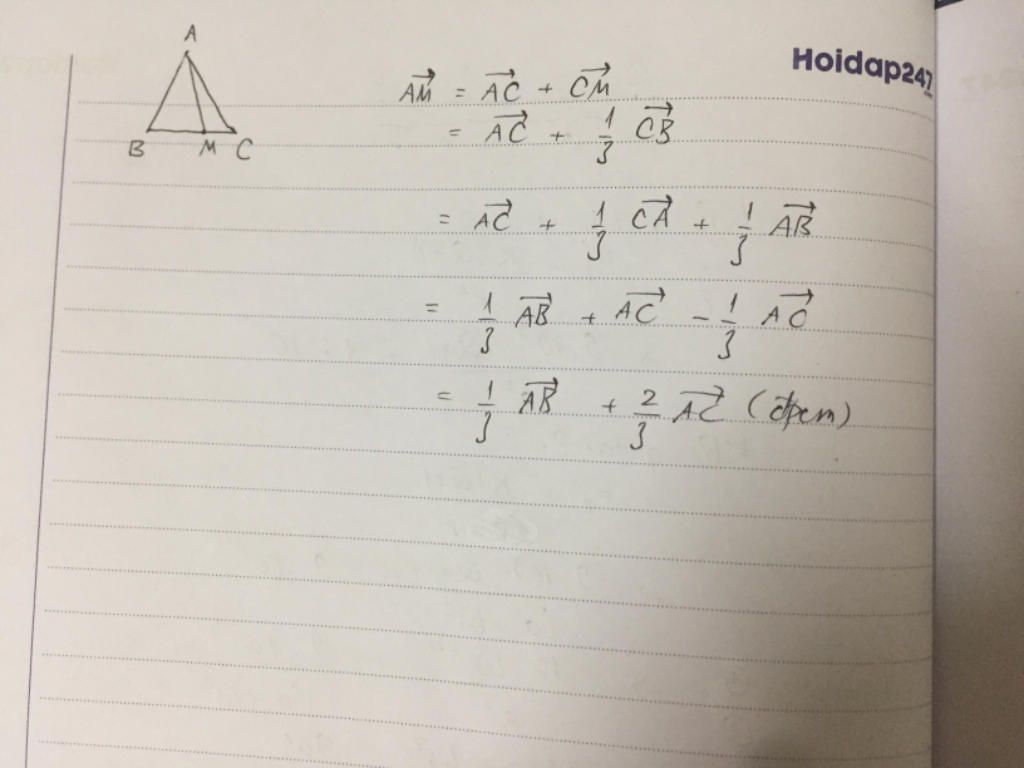 A
B M C
Hoidap247
.com
AM→ = AC→ + CM→
= AC→ + 1/3 CB→
= AC→ + 1/3 CA→ + 1/3 AB→
= 1/3 AB→ + AC→ - 1/3 AC→
= 1/3 AB→ + 2/3 AC→ (đpcm)